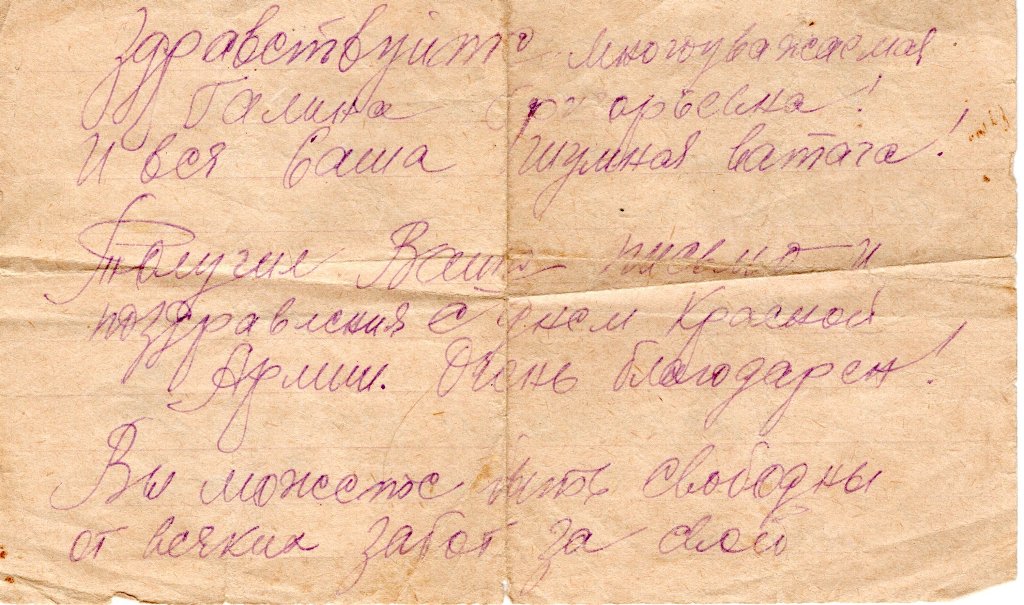 Здравствуйте многоуважаемая
Галина Григорьевна!
И вся Ваша шумная ватага!
Получил Ваши письма и
поздравления с днем Красной
Армии. Очень благодарен!
Вы можете быть свободны
от всяких забот за свой